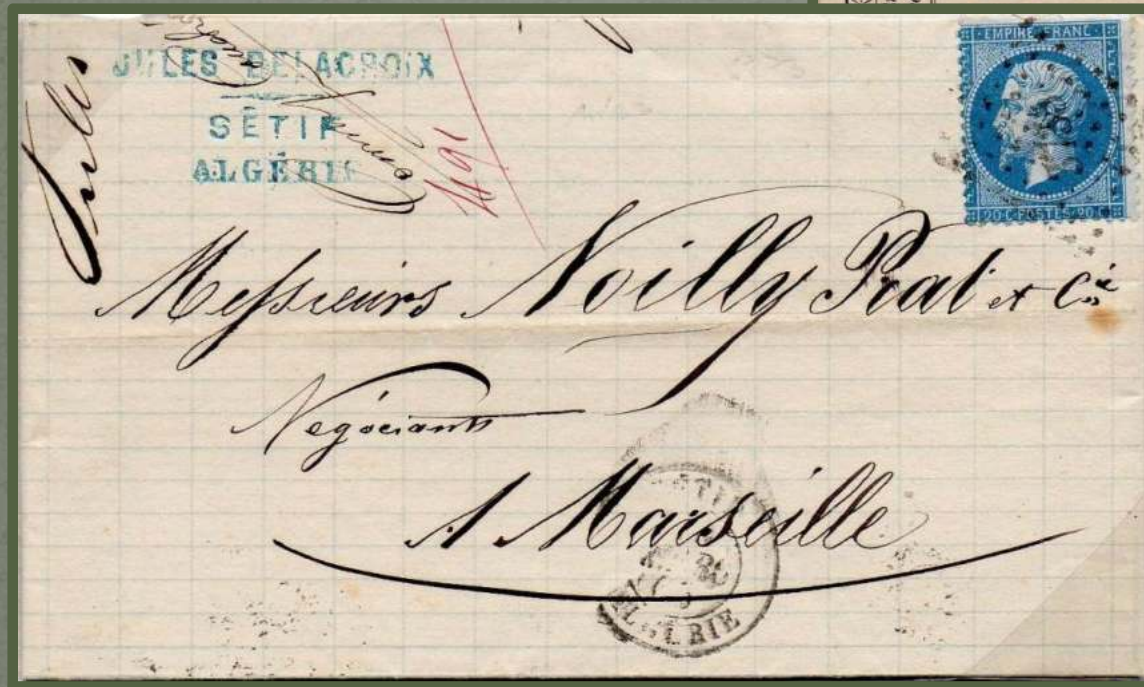 Jules
JULES DELACROIX
SÉTIF
ALGÉRIE
1491
EMPIRE FRANC
20 C POSTES 20 C
Messieurs Noilly Prat et Cie
Négociants
A Marseille
SETIF
ALGERIE